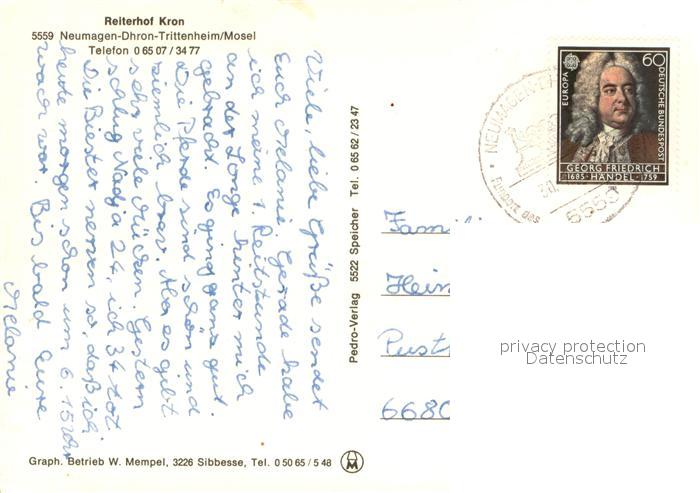 Reiterhof Kron
5559 Neumagen-Dhron-Trittenheim/Mosel
Telefon 0 65 07 / 34 77
Viele, liebe Grüße sendet
Euch Melanie. Gerade habe
ich meine 1 Reitstunde
an der Longe hinter mich
gebracht. Es ging ganz gut.
Die Pferde sind schön und
ziemlich brav. Aber es gibt
sehr viele Mücken. Gestern
schlug Nadja 24, ich 34 tot.
Die Biester nerven so, daß ich
heute morgen schon um 6.15 Uhr
wach war. Bis bald Eure
Melanie
Pedro-Verlag 5522 Speicher Tel. 0 65 62 / 23 47
Graph. Betrieb W. Mempel, 3226 Sibbesse, Tel. 0 50 65 / 5 48
M
EUROPA
60
DEUTSCHE BUNDESPOST
GEORG FRIEDRICH
1685 · HÄNDEL · 1759
NEUMAGEN
5559
Fami
Hein
Pust
6680
privacy protection
Datenschutz